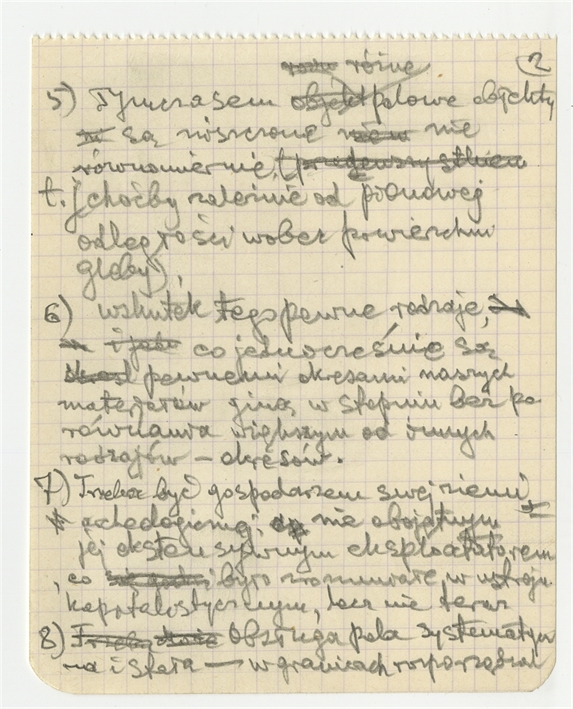 różne 2
5) Tymczasem polowe objekty
są niszczone nie
równomiernie, (
t.j choćby zależnie od pionowej
odległości wobec powierzchni
gleby),
6) wskutek tego pewne rodzaje,
i jako co jednocześnie są
pewnemi okresami naszych
materjałów giną w stopniu bez po
równania większym od innych
rodzajów – okresów.
7) Trzeba być gospodarzem swej ziemi
archeologicznej; nie obojętnym
jej ekstensywnym eksploatatorem
, co było zrozumiałe w ustroju
kapitalistycznym, lecz nie teraz
8) Obsługa pola systematycz
na i stała – w granicach rozporządzal